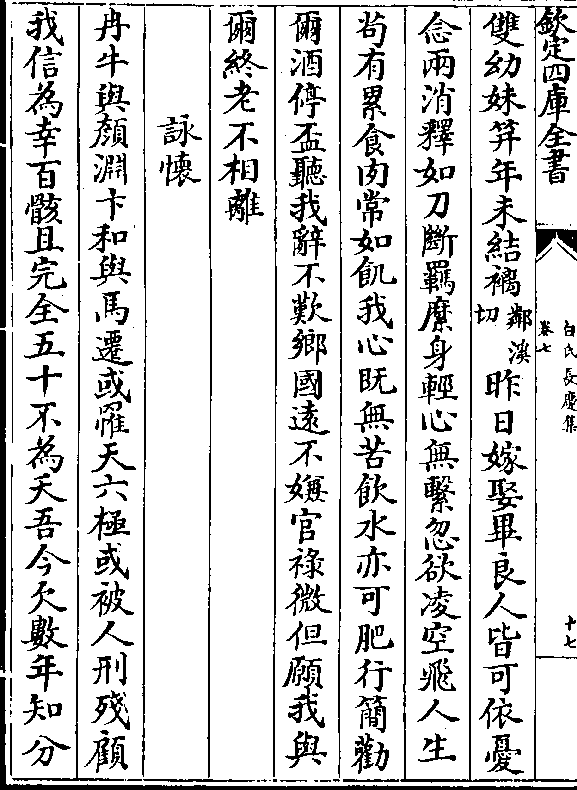 欽定四庫全書
白氏長慶集
卷七
十七
雙幼妹笄年未結褵鄰溪切昨日嫁娶畢良人皆可依憂
念兩消釋如刀斷羈縻身輕心無繫忽欲凌空飛人生
茍有累食肉常如飢我心既無苦飲水亦可肥行簡勸
爾酒停盃聽我辭不歎鄉國遠不嫌官祿微但願我與
爾終老不相離
詠懷
冉牛與顔淵卞和與馬遷或罹天六極或被人刑殘顧
我信為幸百骸且完全五十不為夭吾今欠數年知分